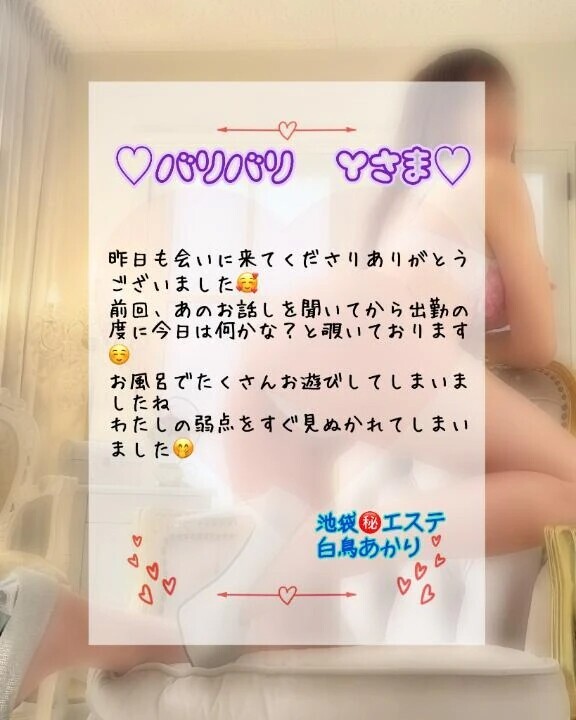 ♡バリバリ Yさま♡
昨日も会いに来てくださりありがとう
ございました🥰
前回、あのお話しを聞いてから出勤の
度に今日は何かな？と覗いております
☺️
お風呂でたくさんお遊びしてしまいま
したね
わたしの弱点をすぐ見ぬかれてしまい
ました🤭
池袋㊙️エステ
白鳥あかり